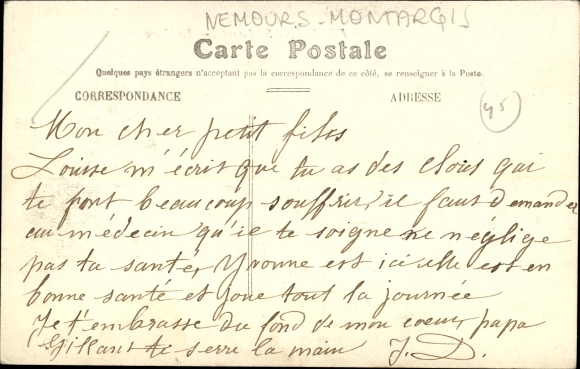 NEMOURS - MONTARGIS
Carte Postale
Quelques pays étrangers n'acceptant pas la correspondance de ce côté, se renseigner à la Poste.
CORRESPONDANCE
ADRESSE
45
Mon cher petit fils
Louise m'écrit que tu as des clous qui
te font beaucoup souffrir, il faut demander
au médecin qu'il te soigne ne néglige
pas ta santé, Yvonne est ici elle est en
bonne santé et joue tout la journée
Je t'embrasse du fond de mon coeur, papa
te serre la main J. D.